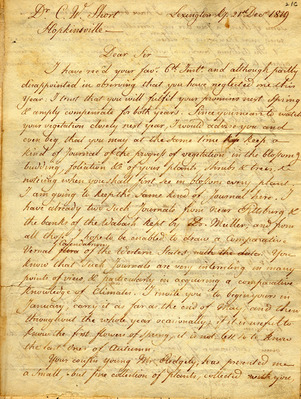 216
Dr C. W. Short Lexington Ky. 21st Dec 1819
Hopkinsville
Dear Sir
I have rec'd your fav. 6th Inst and although partly
disappointed in observing that you have neglected me this
Year I trust that you will fulfil your promises next Spring
& amply compensate for both years. Since you mean to watch
your vegetation closely next year, I would advise you and
even beg that you may at the same time keep a
kind of Journal of the progress of vegetation in the blossoming
budding foliation &c of your plants, shrubs & trees, &
noticing when you shall first see in blossom every plant.
I am going to keep the same kind of Journal here. I
have already two such Journals from near Pittsburg &
the banks of the Wabash kept by Dr. Muller; and from
all those I hope to be enabled to draw a comparative
Vernal flora of the Western States with the dates. You
know that such Journals are very interesting in many
points of view & particularly in acquiring a comparative
knowledge of Climates. I invite you to begin yours in
January carry it as far as the end of May, and then
throughout the whole year occasionally; if it is useful to
know the first flowers of Spring, it is not less so to know
the last ones of Autumn.
Your cousin young Mr. Ridgely, has presented me
a small but fine collection of plants, collected with you